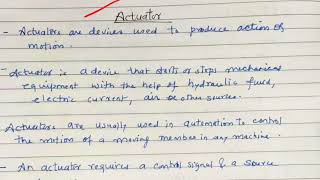 Actuator
- Actuators are devices used to produce action or
motion.
- Actuator is a device that starts or stops mechanical
equipment with the help of hydraulic fluid,
electric current, air or other sources.
Actuators are usually used in automation to control
the motion of a moving member in any machine.
- An actuator requires a control signal & a source